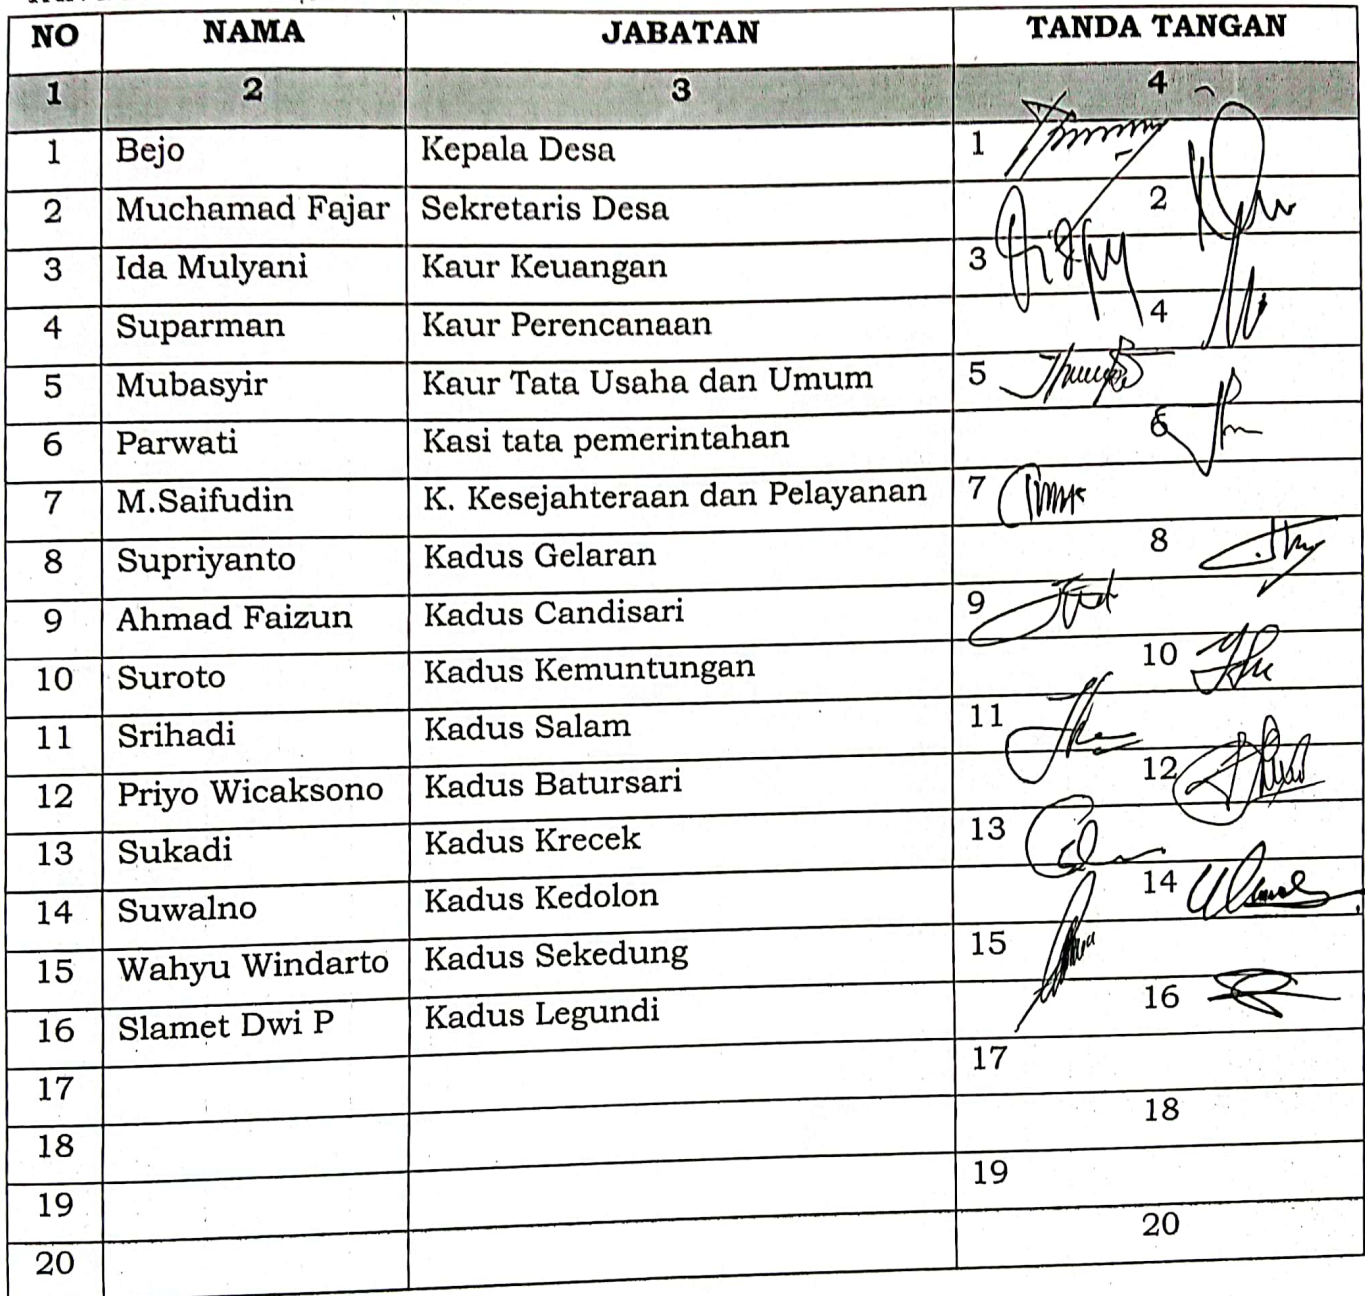 NO NAMA JABATAN TANDA TANGAN
1 2 3 4
1 Bejo Kepala Desa 1
2 Muchamad Fajar Sekretaris Desa 2
3 Ida Mulyani Kaur Keuangan 3
4 Suparman Kaur Perencanaan 4
5 Mubasyir Kaur Tata Usaha dan Umum 5
6 Parwati Kasi tata pemerintahan 6
7 M.Saifudin K. Kesejahteraan dan Pelayanan 7
8 Supriyanto Kadus Gelaran 8
9 Ahmad Faizun Kadus Candisari 9
10 Suroto Kadus Kemuntungan 10
11 Srihadi Kadus Salam 11
12 Priyo Wicaksono Kadus Batursari 12
13 Sukadi Kadus Krecek 13
14 Suwalno Kadus Kedolon 14
15 Wahyu Windarto Kadus Sekedung 15
16 Slamet Dwi P Kadus Legundi 16
17 17
18 18
19 19
20 20